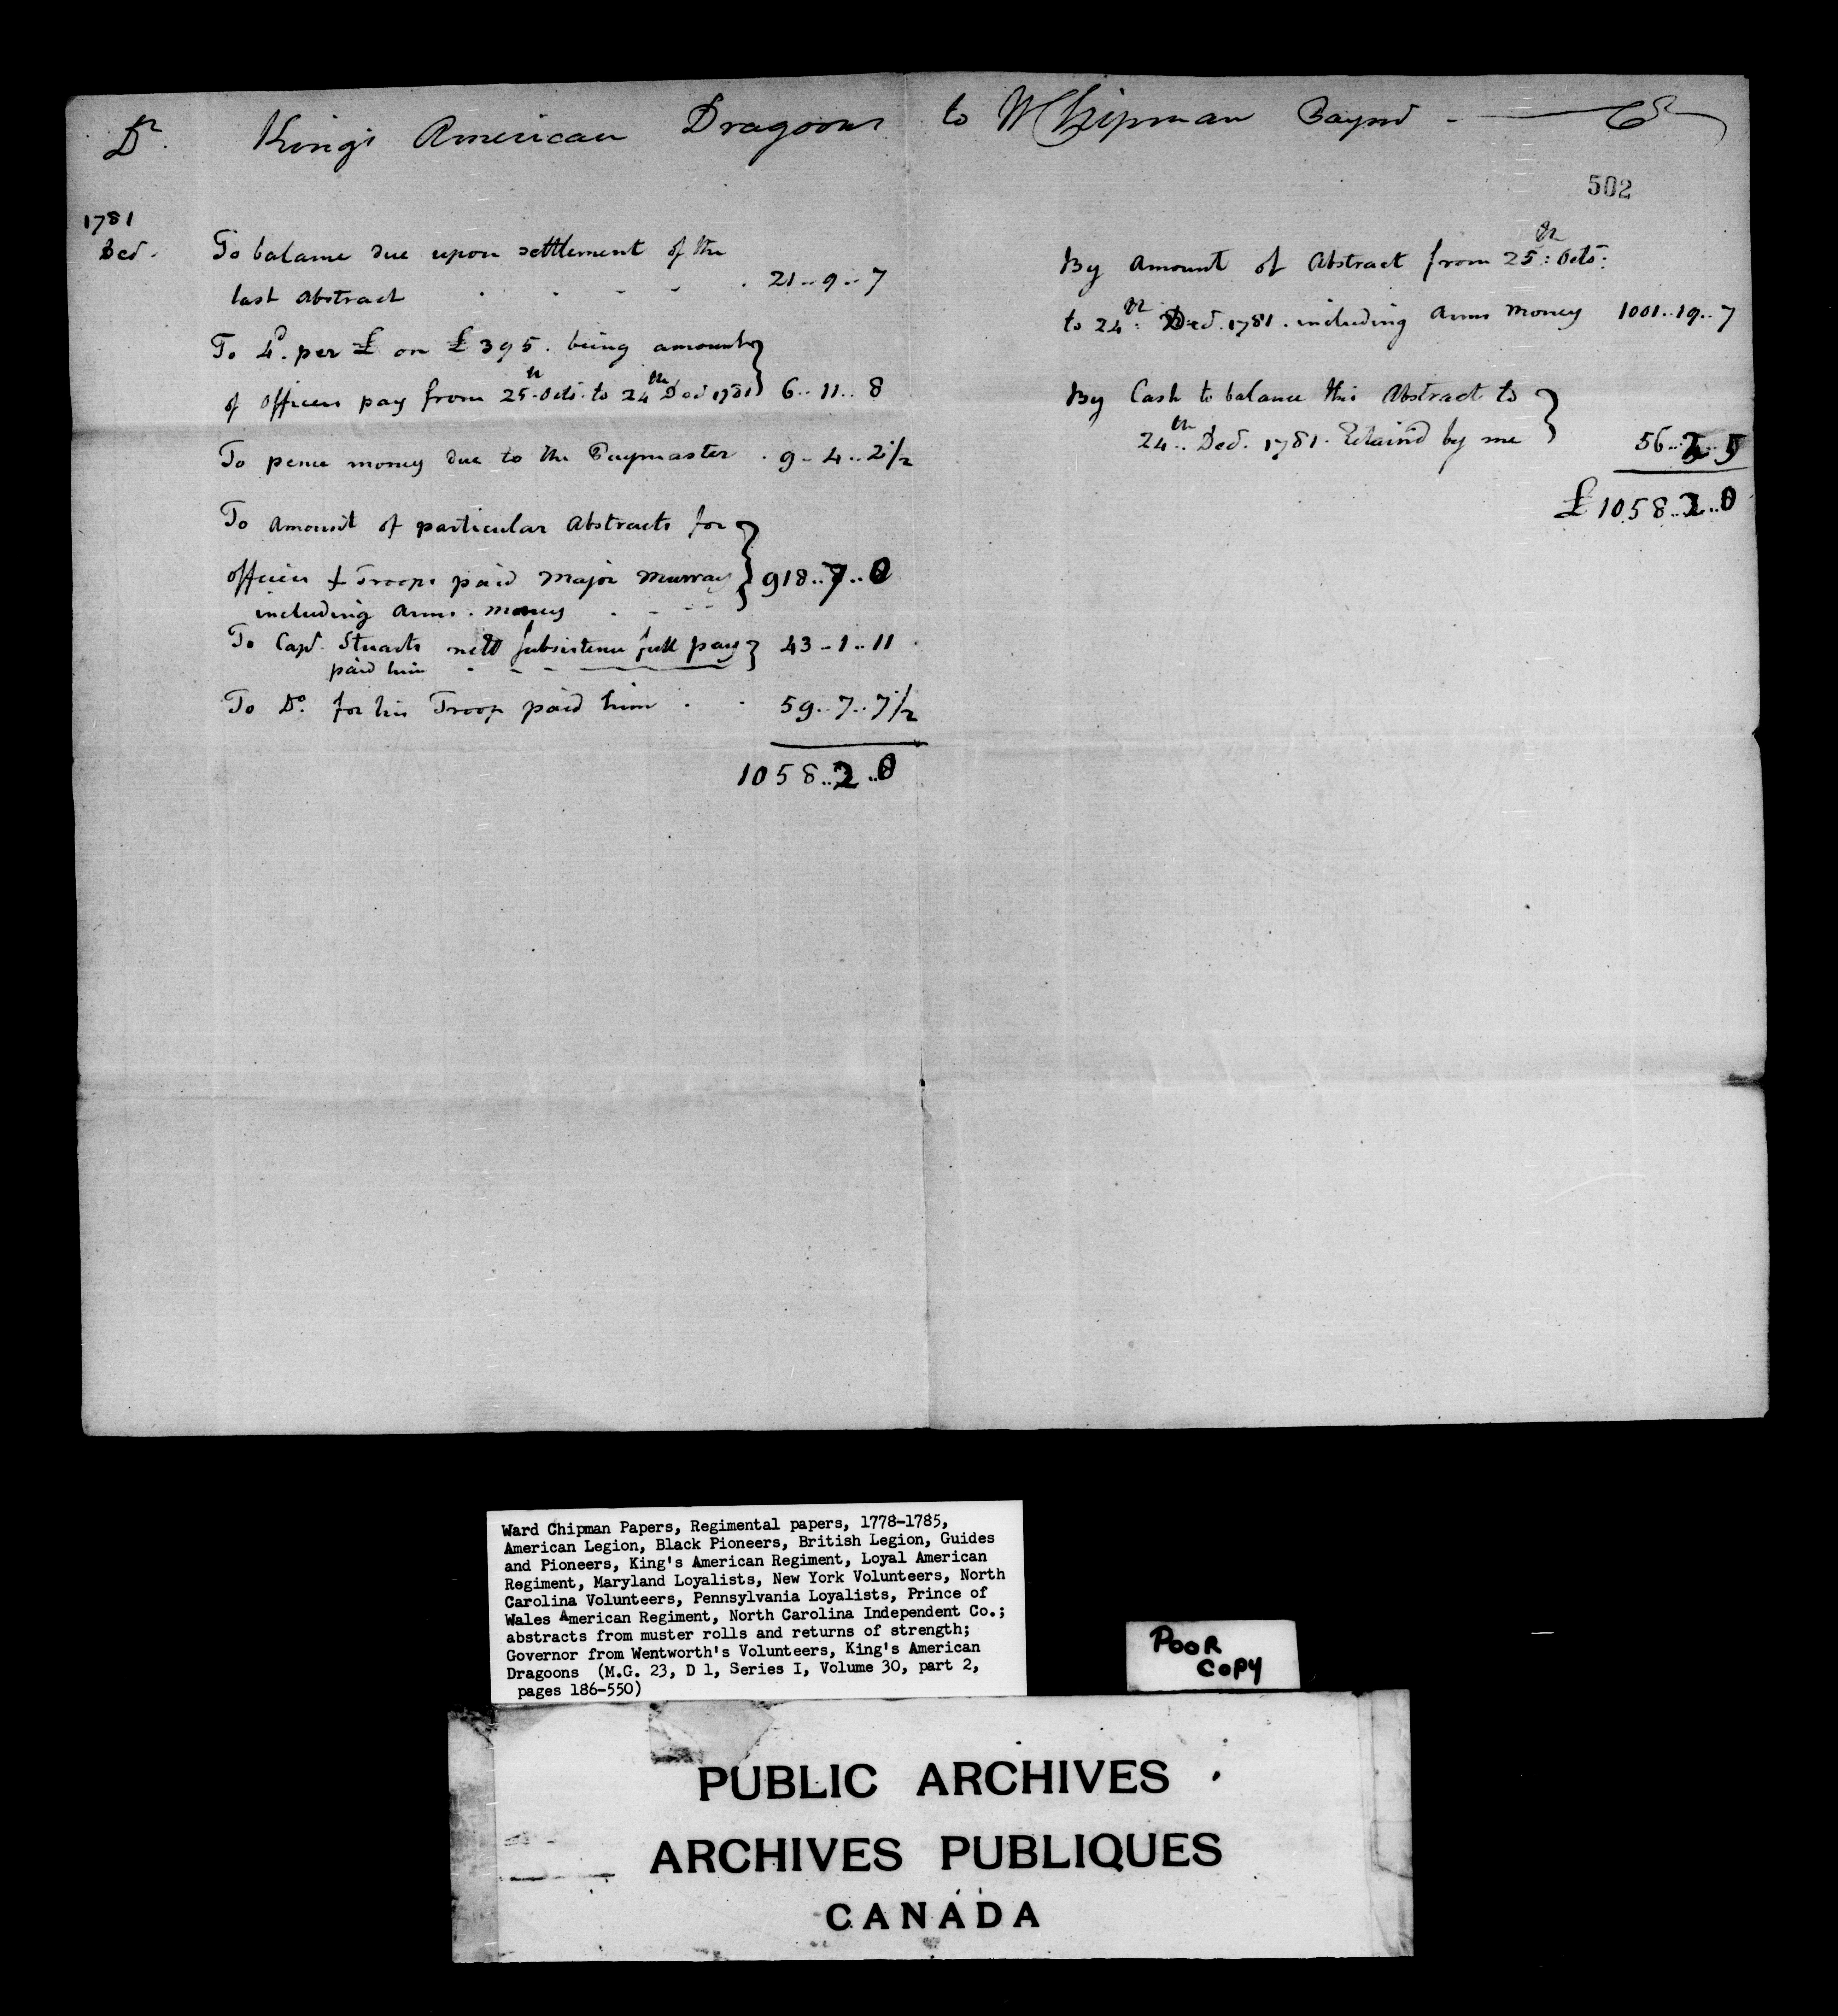 Dr. Kings American Dragoons to W Chipman Paymr. Cr
502
1781
Decr.
To balance due upon settlement of the
last Abstract . . - - . 21..9..7
To 4d. per £ on £395. being amount
of officers pay from 25th Octr. to 24th Decr 1781 } 6..11..8
To pence money due to the Paymaster . 9-4..2 1/2
To Amount of particular Abstracts for
officers & Troops paid Major Murray } 918..7..0
including Arms. money . - - -
To Capt. Stuarts nett subsistence full pay } 43-1..11
paid him - - -
To Do. for his Troop paid him . . 59..7..7 1/2
1058..2..0
By Amount of Abstract from 25th: Octr:
to 24th: Decr. 1781. including Arms Money 1001..19..7
By Cash to balance this Abstract to }
24th.. Decr. 1781. Retain'd by me 56..2..5
£1058..2..0
Ward Chipman Papers, Regimental papers, 1778-1785,
American Legion, Black Pioneers, British Legion, Guides
and Pioneers, King's American Regiment, Loyal American
Regiment, Maryland Loyalists, New York Volunteers, North
Carolina Volunteers, Pennsylvania Loyalists, Prince of
Wales American Regiment, North Carolina Independent Co.;
abstracts from muster rolls and returns of strength;
Governor from Wentworth's Volunteers, King's American
Dragoons (M.G. 23, D 1, Series I, Volume 30, part 2,
pages 186-550)
POOR
COPY
PUBLIC ARCHIVES
ARCHIVES PUBLIQUES
CANADA